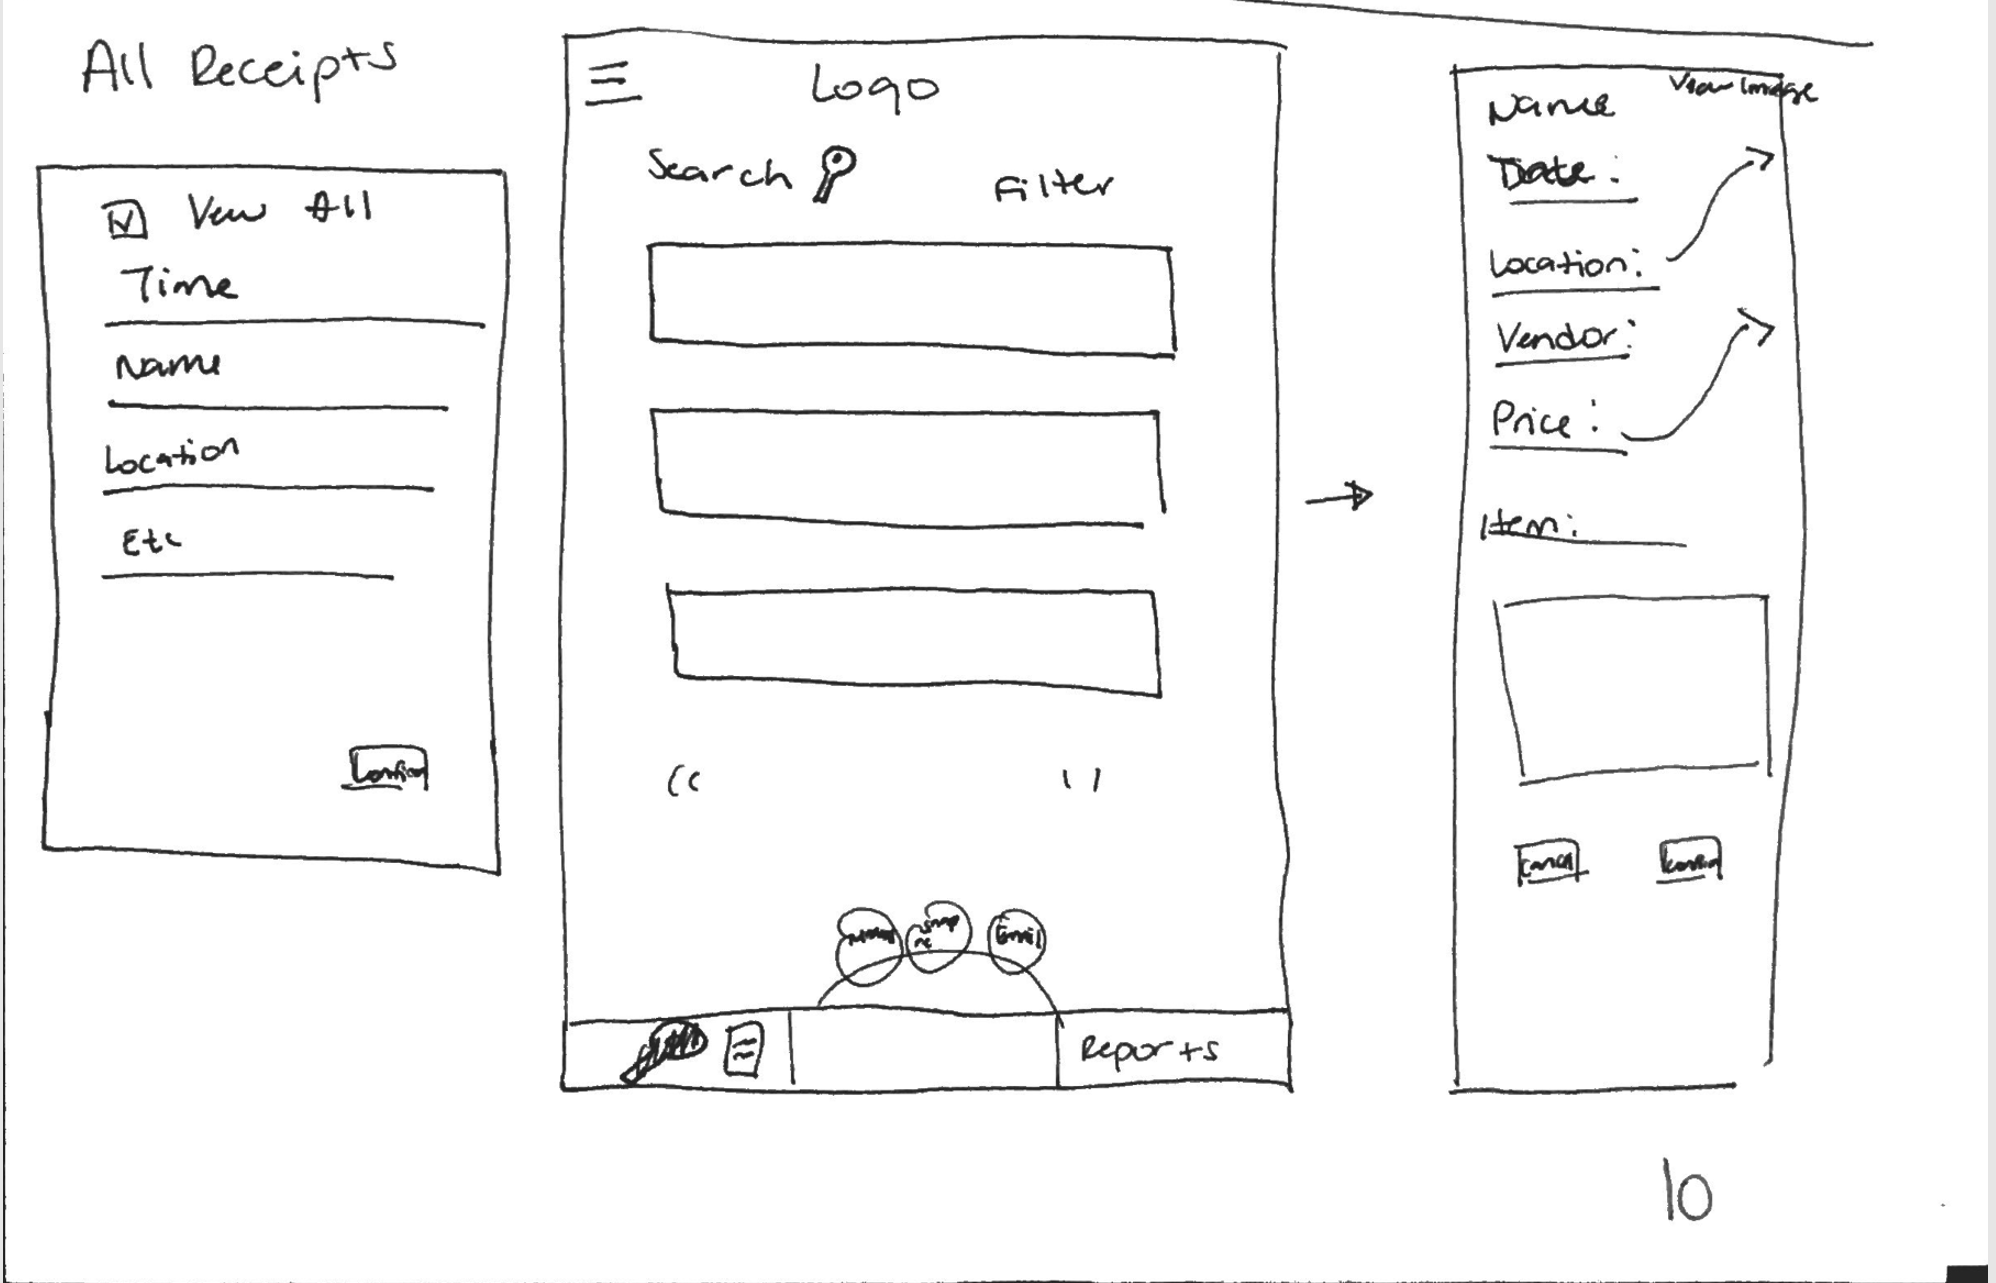 All Receipts
View All
Time
Name
Location
Etc
Confirm
Logo
Search
Filter
Email
Reports
View Image
Name
Date:
Location:
Vendor:
Price:
Item:
Cancel
Confirm
10